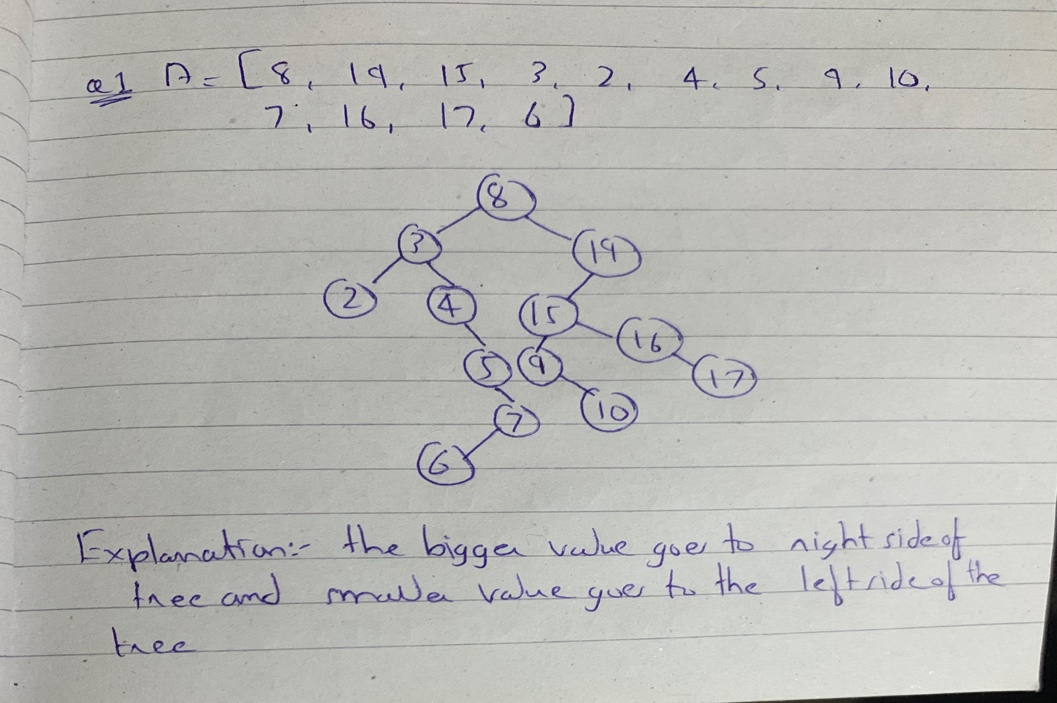 Q1 A = [ 8, 19, 15, 3, 2, 4, 5, 9, 10,
7, 16, 17, 6 ]
8
3 19
2 4 15
16
5 9 17
7 10
6
Explanation:- the bigger value goes to right side of
tree and smaller value goes to the left side of the
tree